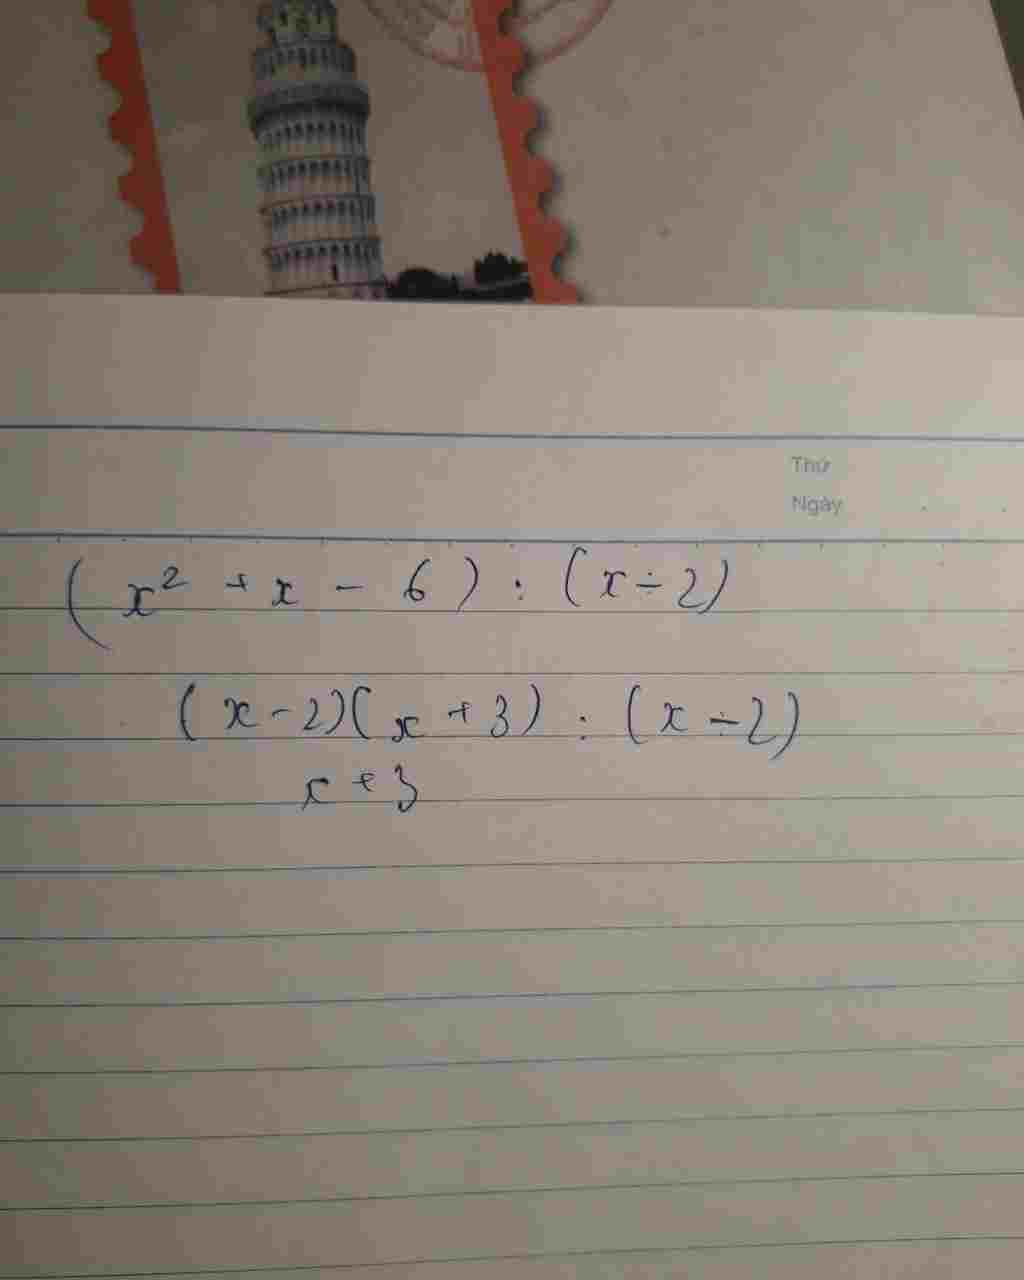 Thứ
Ngày
( x² + x - 6 ) : ( x ÷ 2 )
( x - 2 )( x + 3 ) : ( x ÷ 2 )
x + 3